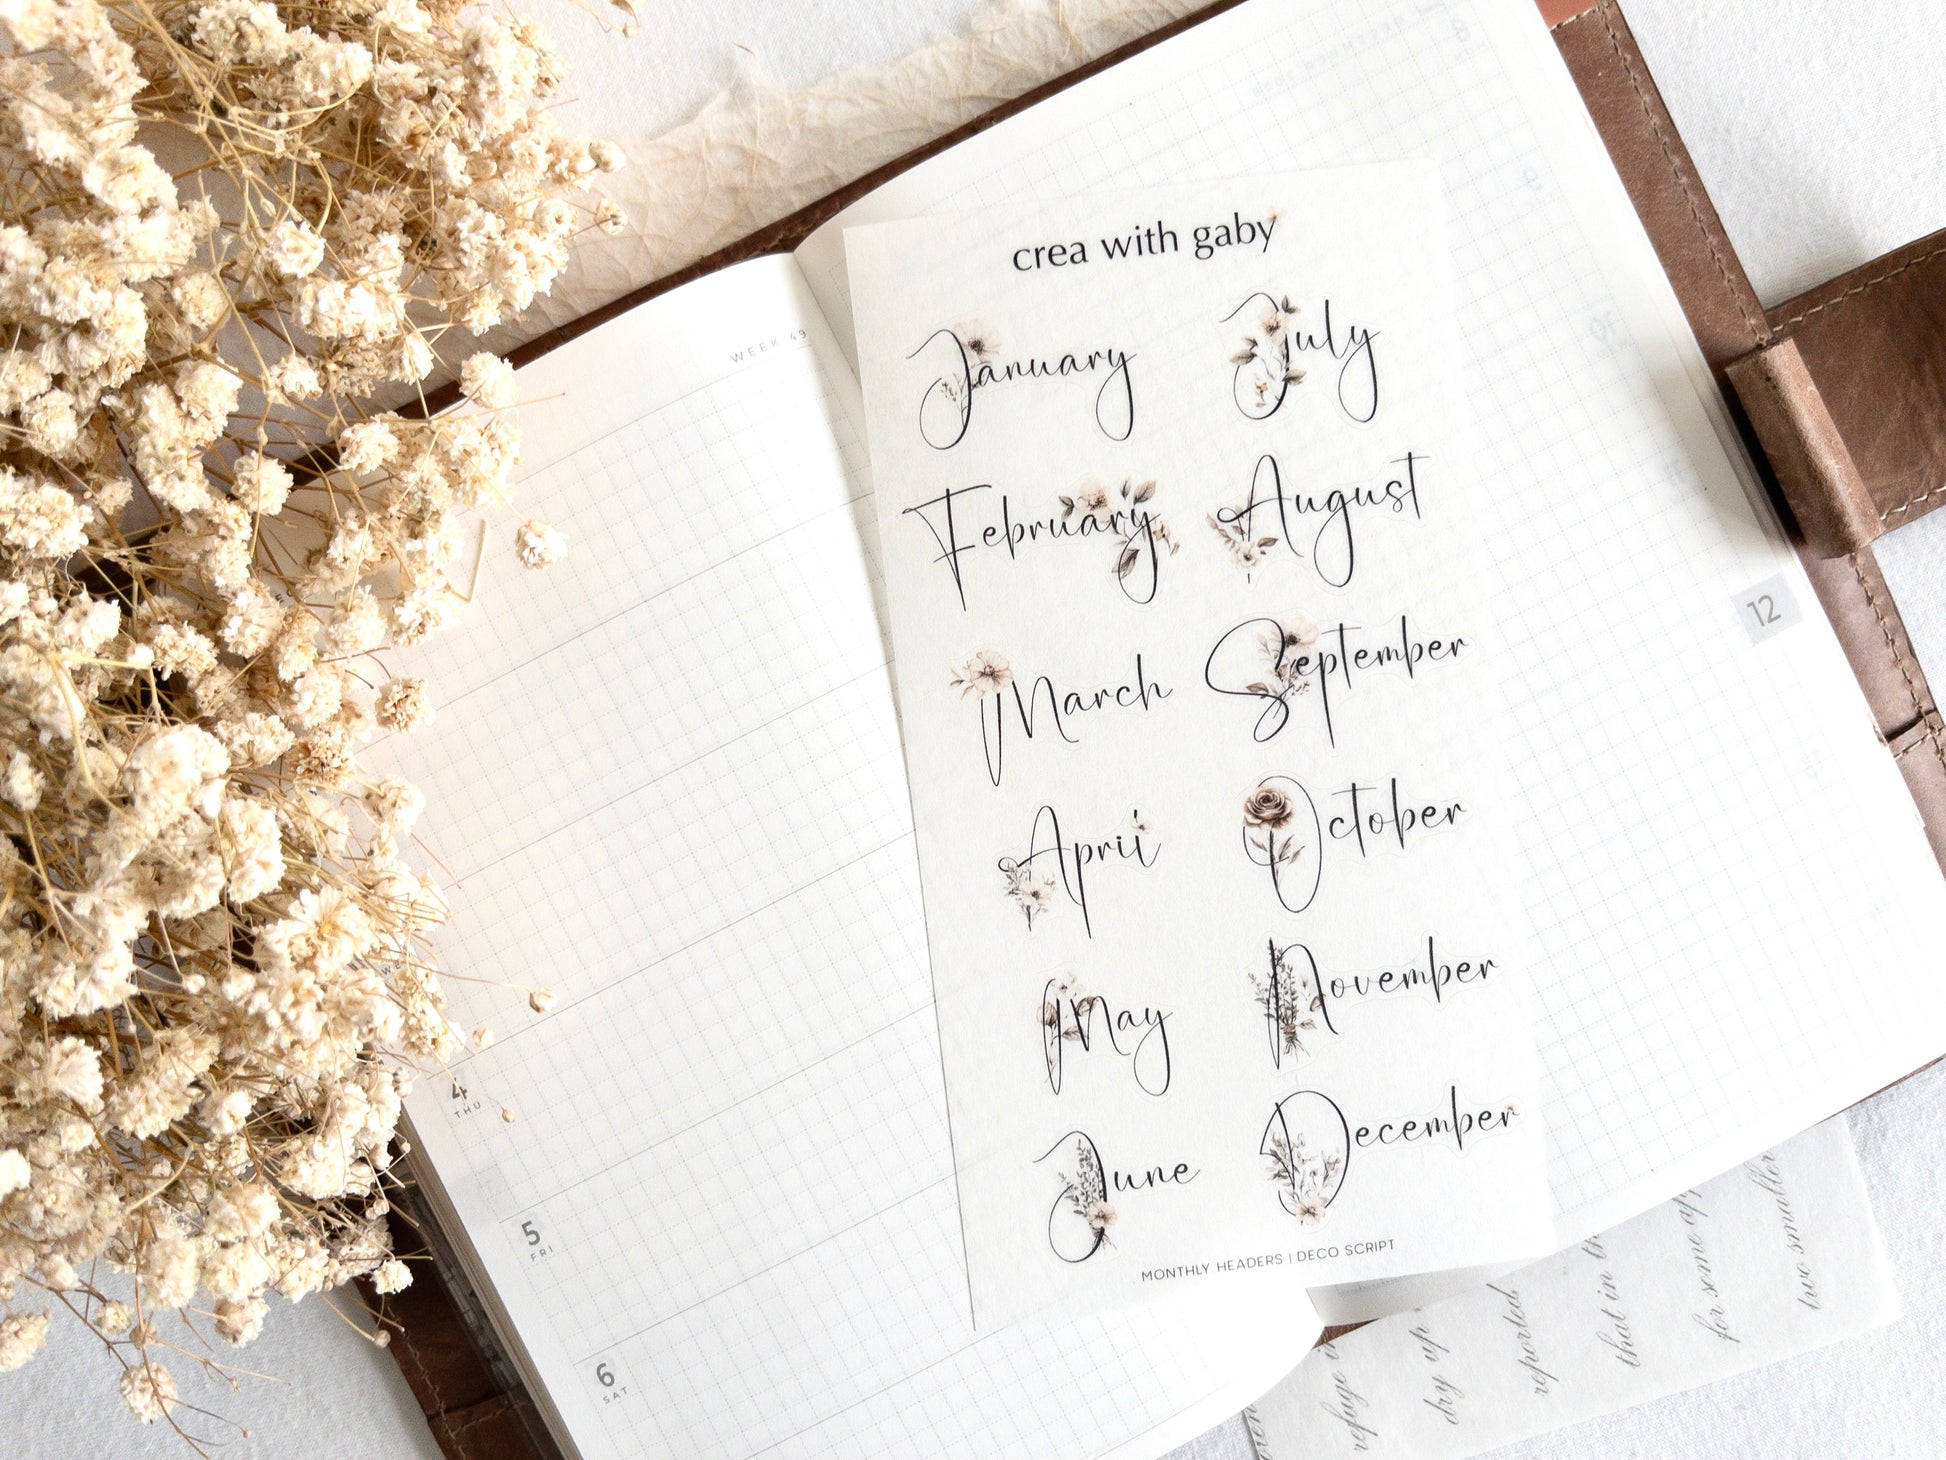 crea with gaby
January
February
March
April
May
June
July
August
September
October
November
December
MONTHLY HEADERS | DECO SCRIPT
WEEK 49
4
THU
5
FRI
6
SAT
12
refuge in
dry up
reported,
that in
for some
two smaller